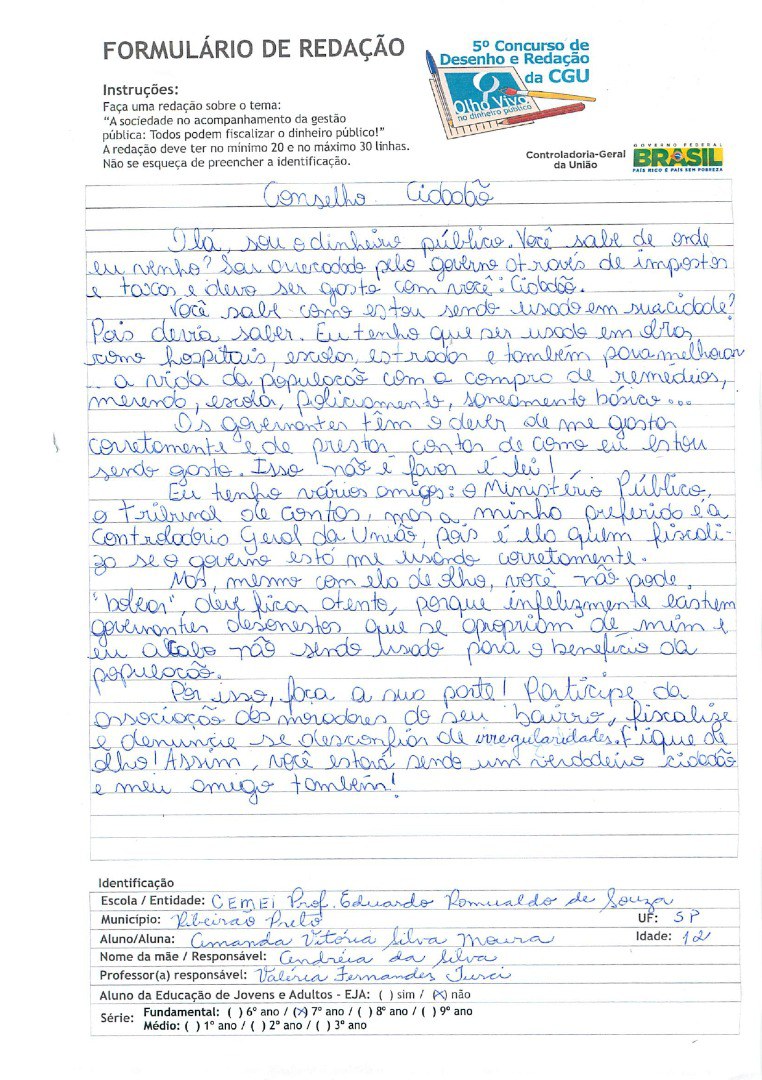 FORMULÁRIO DE REDAÇÃO
5º Concurso de
Desenho e Redação
da CGU
Olho Vivo
no dinheiro público
Instruções:
Faça uma redação sobre o tema:
“A sociedade no acompanhamento da gestão
pública: Todos podem fiscalizar o dinheiro público!”
A redação deve ter no mínimo 20 e no máximo 30 linhas.
Não se esqueça de preencher a identificação.
Controladoria-Geral
da União
GOVERNO FEDERAL
BRASIL
PAÍS RICO É PAÍS SEM POBREZA
Conselho Cidadão
Olá, sou o dinheiro público. Você sabe de onde
eu venho? Sou arrecadado pelo governo através de impostos
e taxas e devo ser gasto com você: Cidadão.
Você sabe como estou sendo usado em sua cidade?
Pois devia saber. Eu tenho que ser usado em obras
como hospitais, escolas, estradas e também para melhorar
a vida da população com a compra de remédios,
merenda, escolar, policiamento, saneamento básico...
Os governantes têm o dever de me gastar
corretamente e de prestar contas de como eu estou
sendo gasto. Isso não é favor é lei!
Eu tenho vários amigos: o Ministério Público,
o tribunal de contas, mas a minha preferida é a
Controladoria Geral da União, pois é ela quem fiscali-
za se o governo está me usando corretamente.
Mas, mesmo com ela de olho, você não pode
"bobear", deve ficar atento, porque infelizmente existem
governantes desonestos que se apropriam de mim e
eu acabo não sendo usado para o benefício da
população.
Por isso, faça a sua parte! Participe da
associação dos moradores do seu bairro, fiscalize
e denuncie se desconfiar de irregularidades. Fique de
olho! Assim, você estará sendo um verdadeiro cidadão
e meu amigo também!
Identificação
Escola / Entidade: CEMEI Prof. Eduardo Romualdo de Souza
Município: Ribeirão Preto UF: SP
Aluno/Aluna: Amanda Vitória Silva Moura Idade: 12
Nome da mãe / Responsável: Andréia da Silva
Professor(a) responsável: Valéria Fernandes Turci
Aluno da Educação de Jovens e Adultos - EJA: ( ) sim / (X) não
Série: Fundamental: ( ) 6º ano / (X) 7º ano / ( ) 8º ano / ( ) 9º ano
Médio: ( ) 1º ano / ( ) 2º ano / ( ) 3º ano